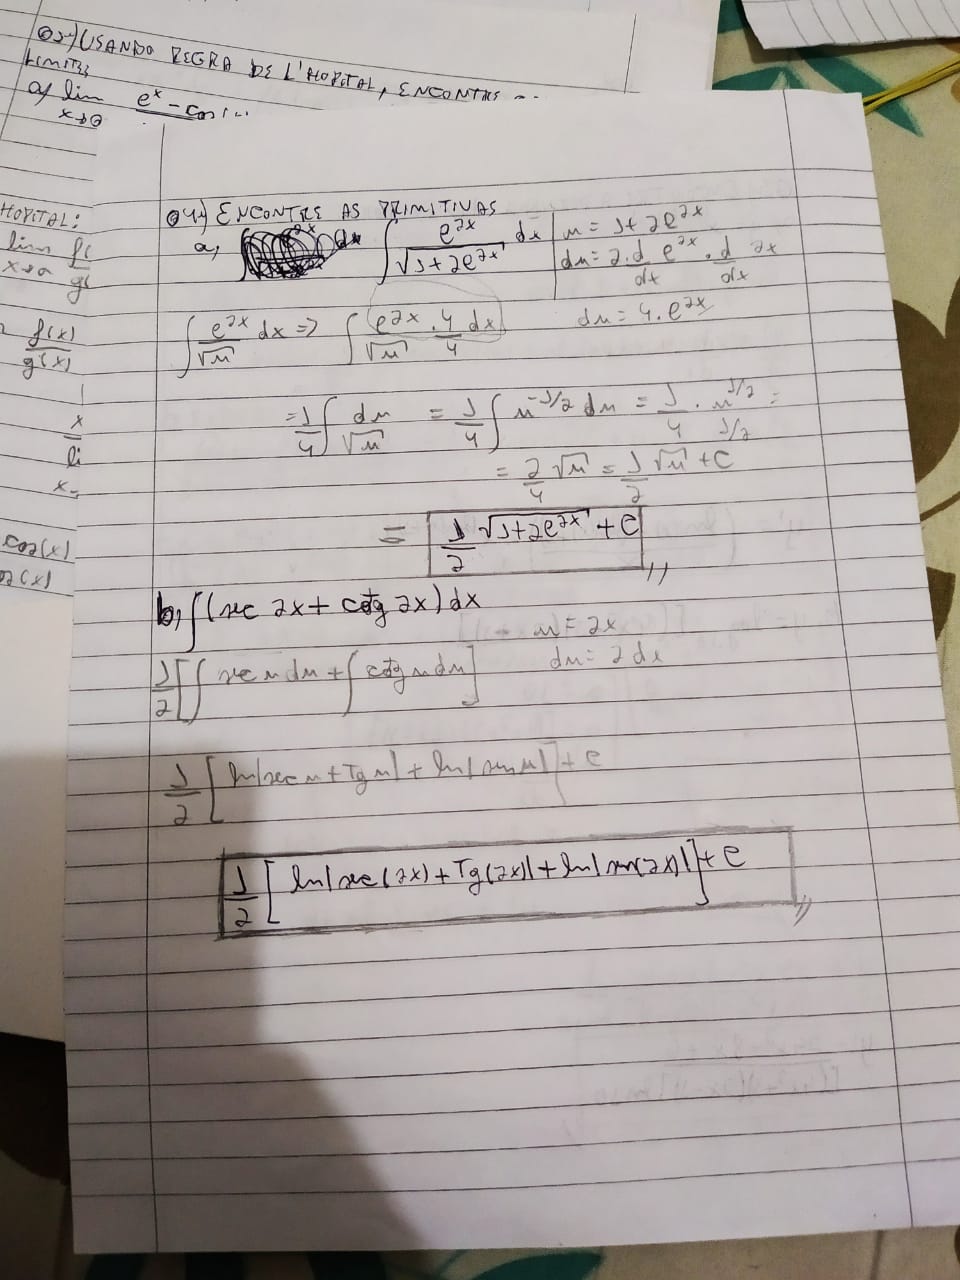 03-) USANDO REGRA DE L'HOPITAL, ENCONTRE
LIMITES
a) lim e^x - cos
x→0
HOPITAL:
lim f(
x→a g(
f(x)
g'(x)
x
li
x
cos(x)
(x)
04-) ENCONTRE AS PRIMITIVAS
a) dx ∫ e^2x/√(1+2e^2x) dx | u = 1+2e^2x
du = 2.d/dx e^2x . d/dx 2x
du = 4.e^2x
∫ e^2x/√u dx => ∫ e^2x/√u . 4/4 dx
= 1/4 ∫ du/√u = 1/4 ∫ u^-1/2 du = 1/4 . u^1/2 / 1/2 =
= 2/4 √u = 1/2 √u + C
= 1/2 √(1+2e^2x) + C
b) ∫(sec 2x + cotg 2x) dx
u = 2x
du = 2dx
1/2 [∫ sec u du + ∫ cotg u du]
1/2 [ln|sec u + Tg u| + ln|sen u|] + C
1/2 [ln|sec(2x) + Tg(2x)| + ln|sen(2x)|] + C